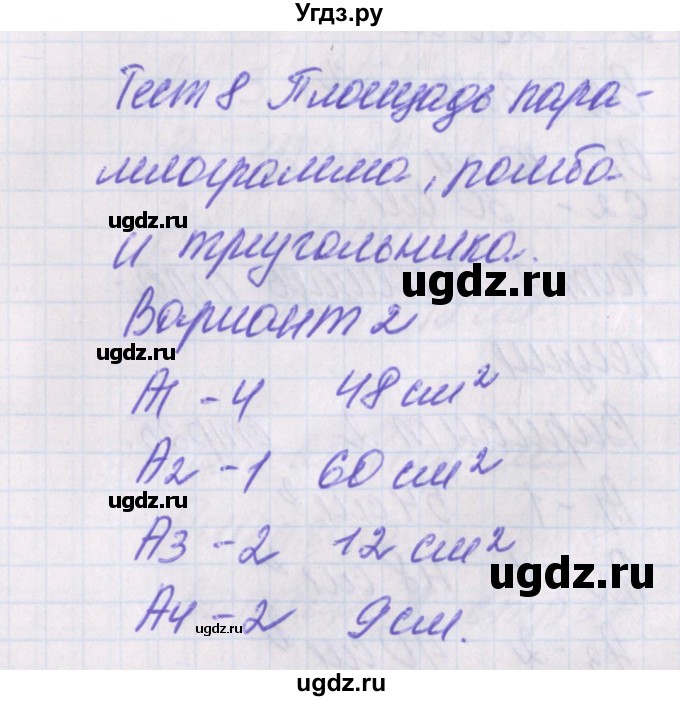 Угдз.ру
Тест 8 Площадь пара-
лелограмма, ромба
ugdz.ru
и треугольника.
ugdz.ru
Вариант 2
ugdz.ru
А1 - 4 48 см²
А2 - 1 60 см²
ugdz.ru
А3 - 2 12 см²
ugdz.ru
А4 - 2 9 см.
ugdz.ru
ugdz.ru